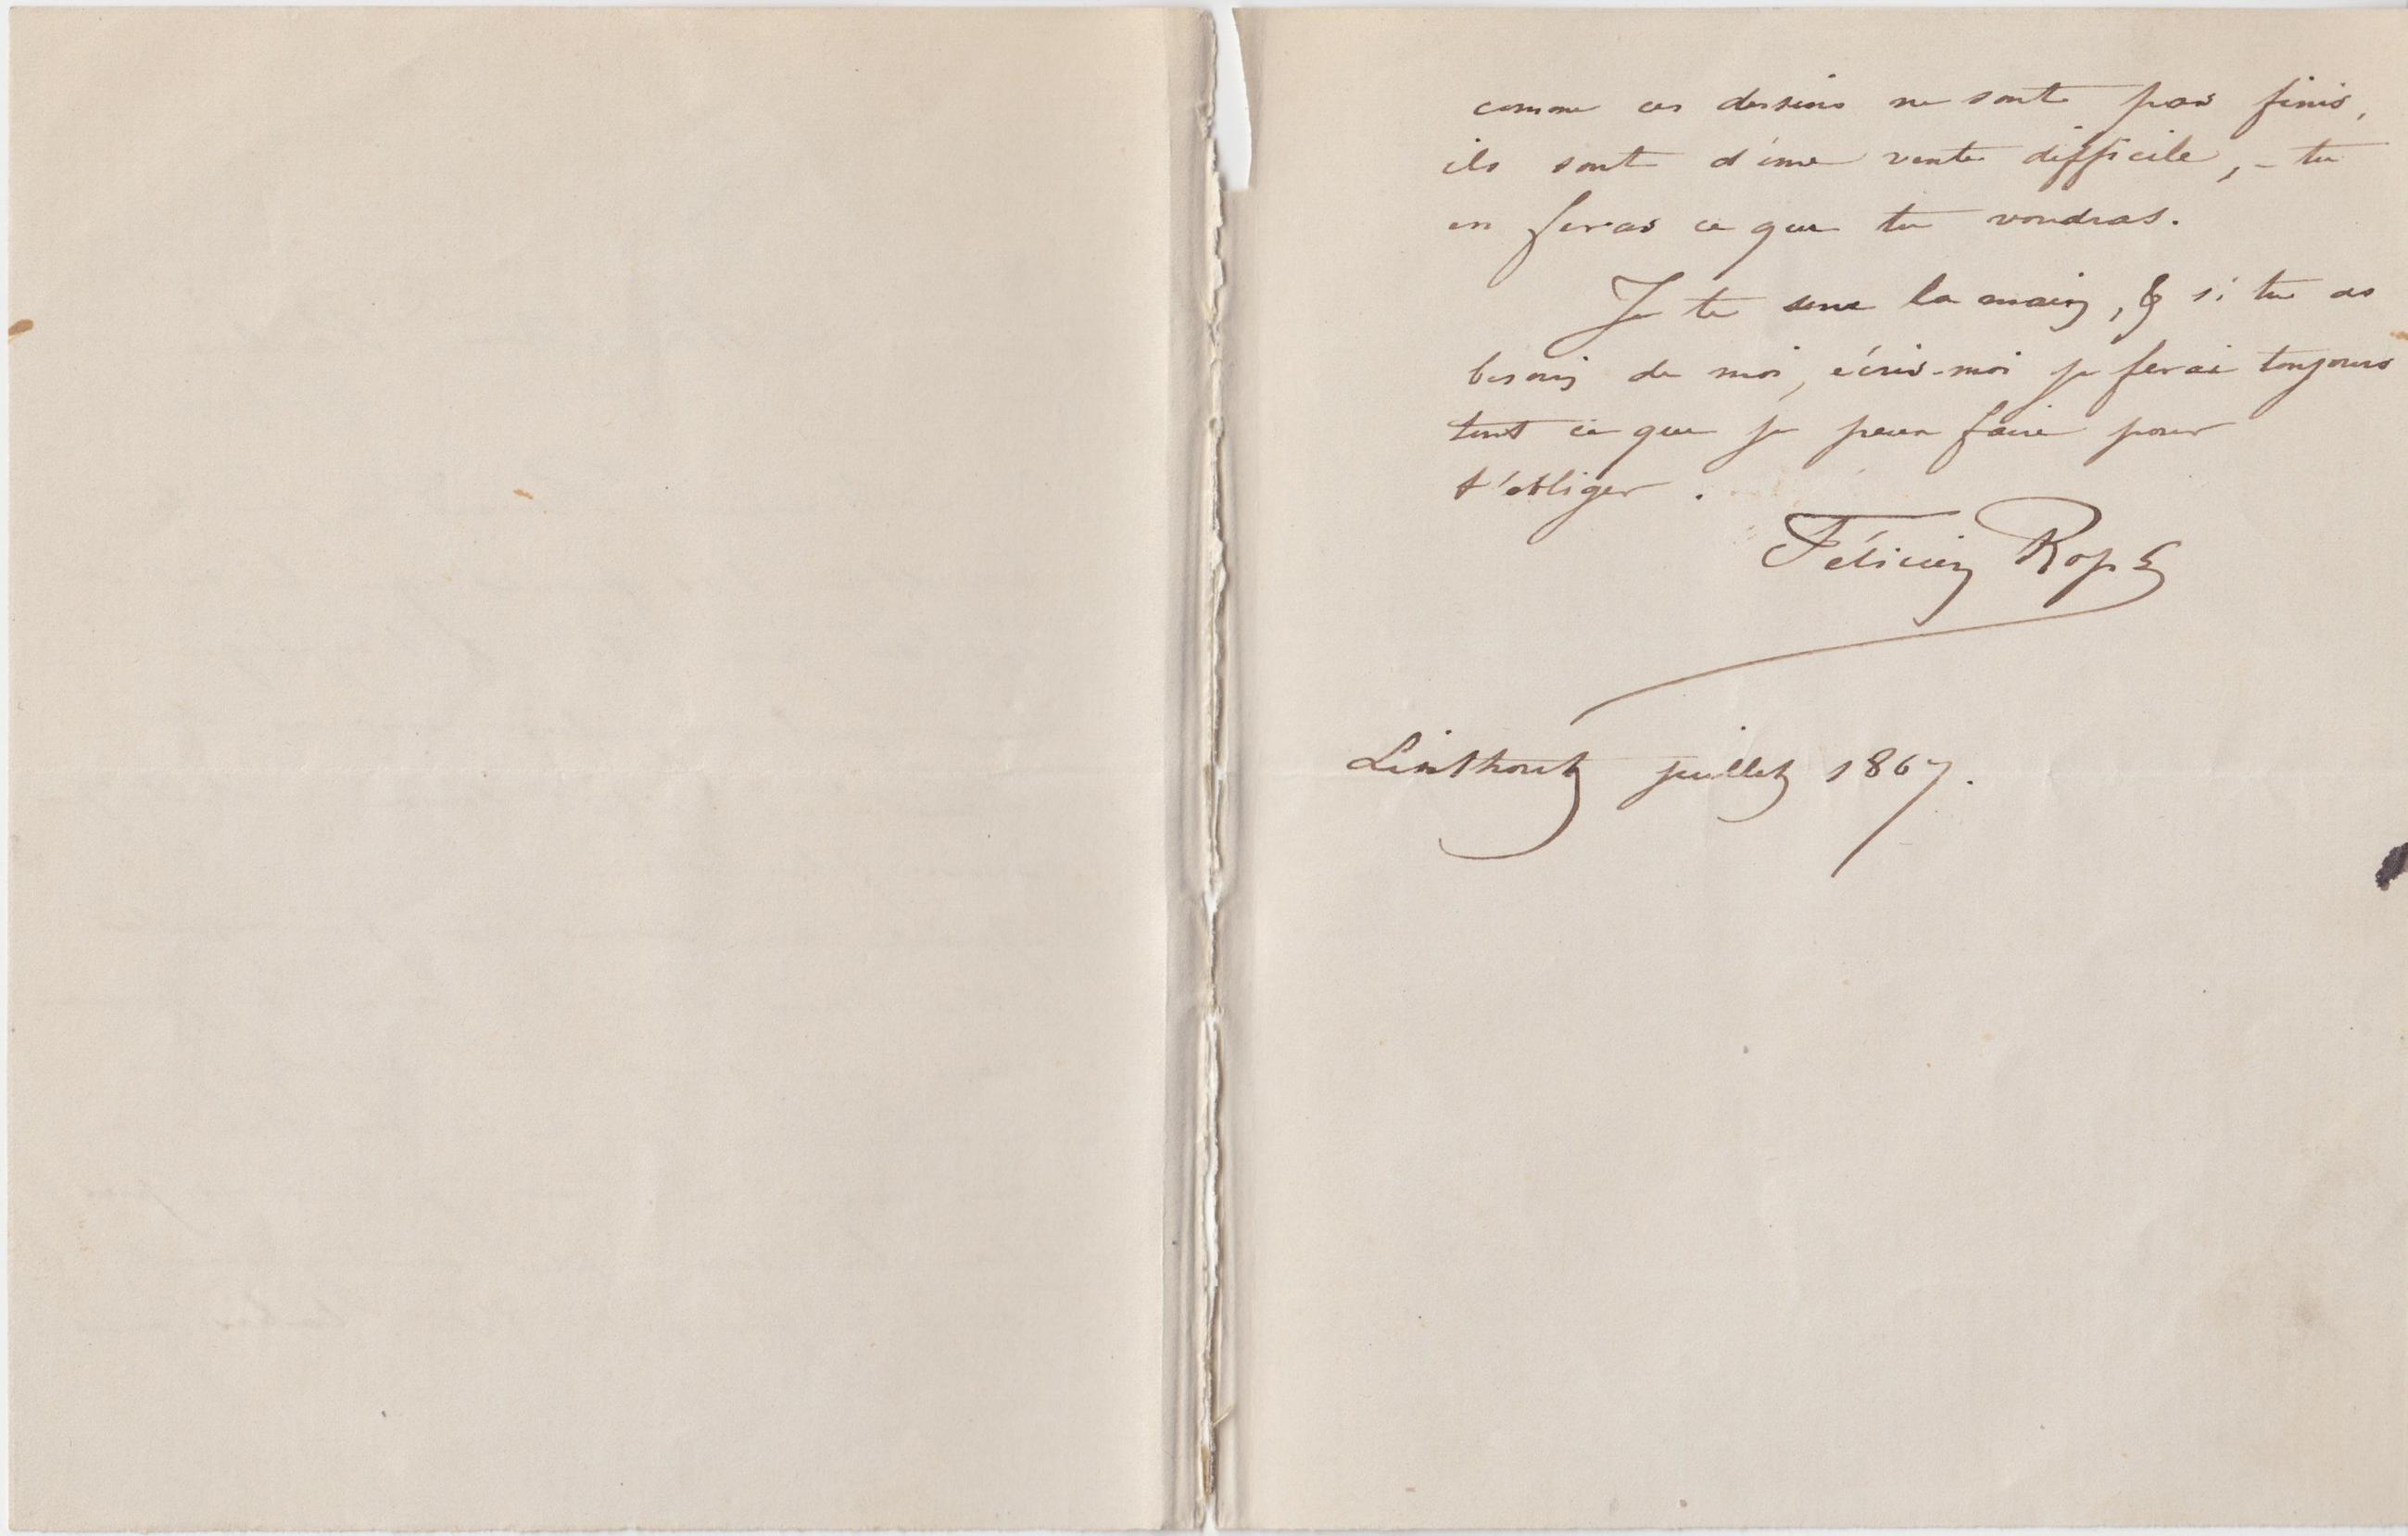 comme ces dessins ne sont pas finis,
ils sont d'une vente difficile, – tu
en feras ce que tu voudras.
Je te serre la main, & si tu as
besoin de moi, écris-moi je ferai toujours
tout ce que je peux faire pour
t'obliger.
Félicien Rops
Linthout juillet 1867.